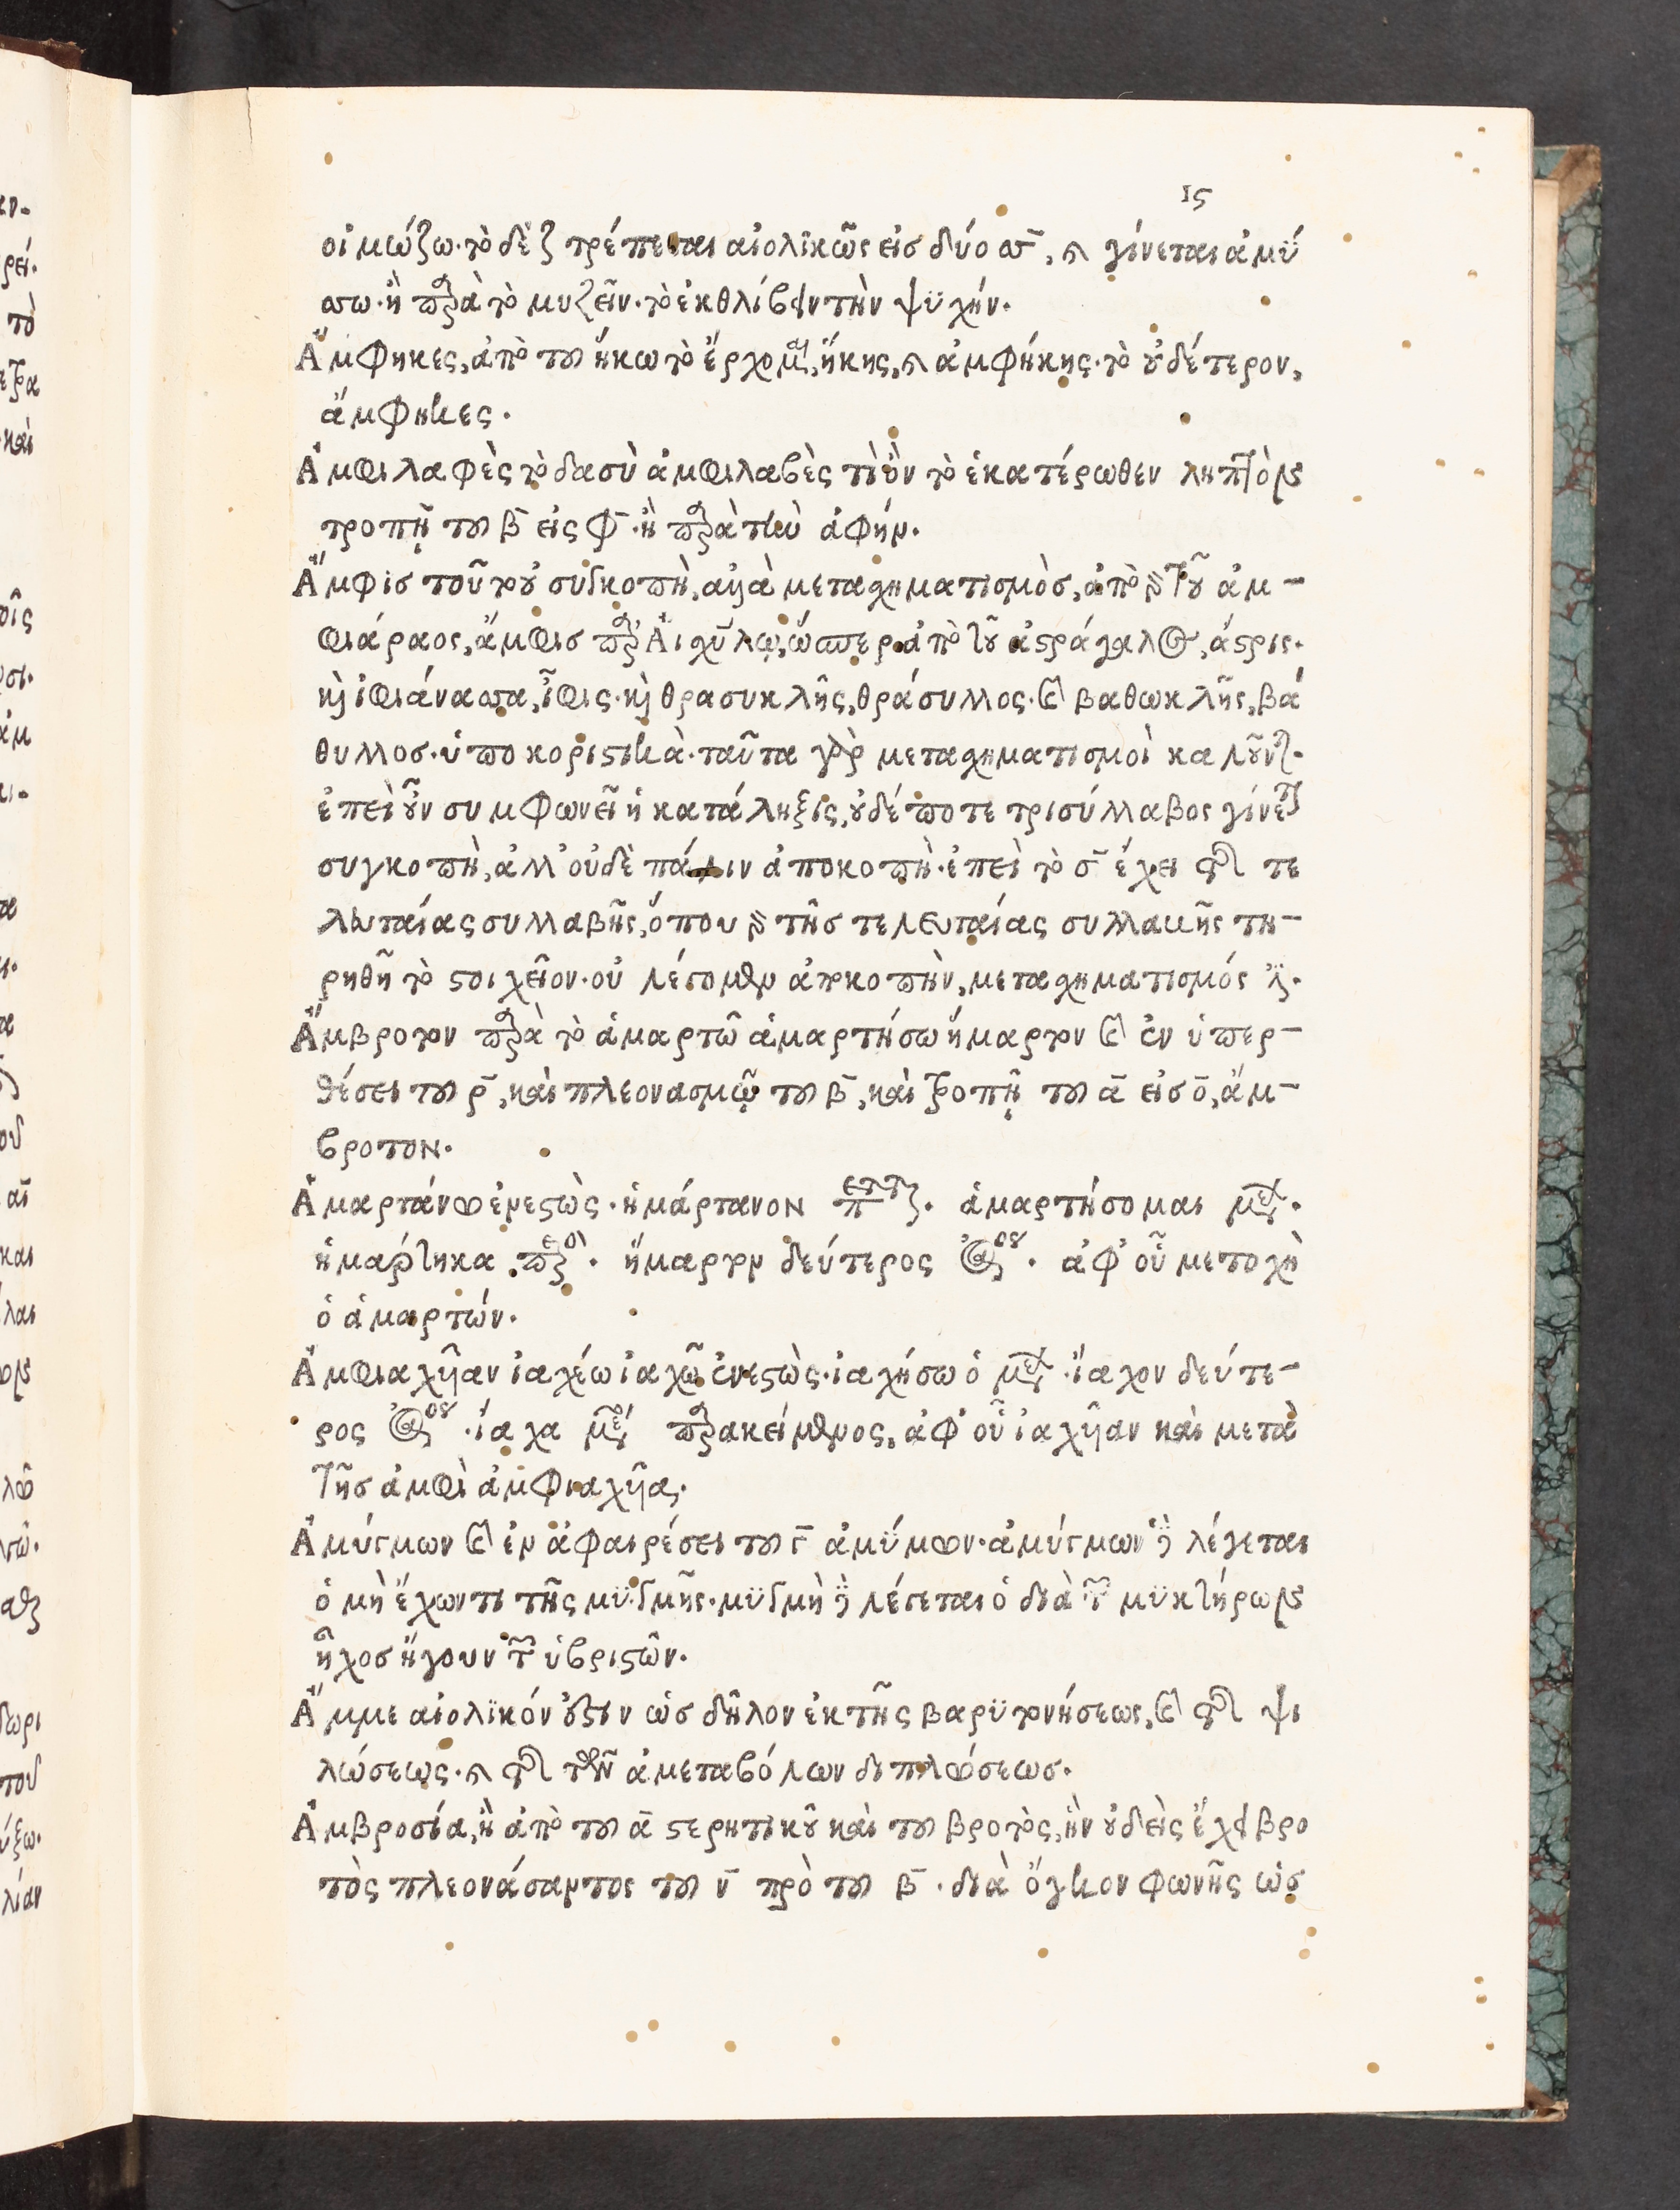 15
οἰμώζω. τὸ δὲ ζ τρέπεται αἰολικῶς εἰσ δύο σσ̄, καὶ γίνεται ἀμύ
σσω. ἢ παρὰ τὸ μυζεῖν. τὸ ἐκθλίβειν τὴν ψυχήν.
Ἄμφηκες, ἀπὸ τοῦ ἥκω τὸ ἔρχομαι, ἥκης, καὶ ἀμφήκης. τὸ οὐδέτερον,
ἄμφηκες.
Ἀμφιλαφὲς τὸ δασὺ ἀμφιλαβὲς τὶ ὂν τὸ ἑκατέρωθεν ληπτὸν
τροπῇ τοῦ β̄ εἰς φ̄. ἢ παρὰ τὴν ἁφήν.
Ἄμφισ τοῦτο οὐ συγκοπὴ, ἀλλὰ μετασχηματισμὸσ, ἀπὸ γὰρ τοῦ ἀμ-
φιάραος, ἄμφισ παρ Αἰσχύλῳ, ὥσπερ ἀπὸ τοῦ ἀστράγαλος, ἄστρις.
καὶ ἰφιάνασσα, ἶφις. καὶ θρασυκλῆς, θράσυλλος. καὶ βαθωκλῆς, βά
θυλλοσ. ὑποκοριστικὰ. ταῦτα γὰρ μετασχηματισμοὶ καλοῦνται.
ἐπεὶ οὖν συμφωνεῖ ἡ κατάληξις, οὐδέποτε τρισύλλαβος γίνεται
συγκοπὴ, ἀλλ' οὐδὲ πάλιν ἀποκοπὴ. ἐπεὶ τὸ σ̄ ἔχει τῆς τε
λευταίας συλλαβῆς, ὅπου γὰρ τῆσ τελευταίας συλλαβῆς τη-
ρηθῇ τὸ στοιχεῖον. οὐ λέγομεν ἀποκοπὴν, μετασχηματισμός ἐστι.
Ἄμβροτον παρὰ τὸ ἁμαρτῶ ἁμαρτήσω ἥμαρτον καὶ ἐν ὑπερ-
θέσει τοῦ ρ̄, καὶ πλεονασμῷ τοῦ β̄, καὶ τροπῇ τοῦ ᾱ εἰσ ο̄, ἄμ-
βροτον.
Ἁμαρτάνω ἐνεστὼς. ἡμάρτανον παρατατικός. ἁμαρτήσομαι μέλλων.
ἡμάρτηκα παρακείμενος. ἥμαρτον δεύτερος ἀόριστος. ἀφ' οὗ μετοχὴ
ὁ ἁμαρτών.
Ἀμφιαχῆαν ἰαχέω ἰαχῶ ἐνεστὼς. ἰαχήσω ὁ μέλλων. ἴαχον δεύτε-
ρος ἀόριστος. ἴαχα μέσος παρακείμενος, ἀφ' οὗ ἰαχῆαν καὶ μετὰ
τῆσ ἀμφὶ ἀμφιαχῆα.
Ἀμύγμων καὶ ἐν ἀφαιρέσει τοῦ γ̄ ἀμύμων. ἀμύγμων δὲ λέγεται
ὁ μὴ ἔχων τι τῆς μυγμῆς. μυγμὴ δὲ λέγεται ὁ διὰ τῶν μυκτήρων
ἦχοσ ἤγουν τῶν ὑβριστῶν.
Ἄμμε αἰολικόν ἐστιν ὡσ δῆλον ἐκ τῆς βαρυτονήσεως, καὶ τῆς ψι
λώσεως. καὶ τῆς τῶν ἀμεταβόλων διπλώσεωσ.
Ἀμβροσία, ἢ ἀπὸ τοῦ ᾱ στερητικοῦ καὶ τοῦ βροτὸς, ἣν οὐδεὶς ἔχει βρο
τὸς πλεονάσαντος τοῦ ν̄ πρὸ τοῦ β̄. διὰ ὄγκον φωνῆς ὡσ